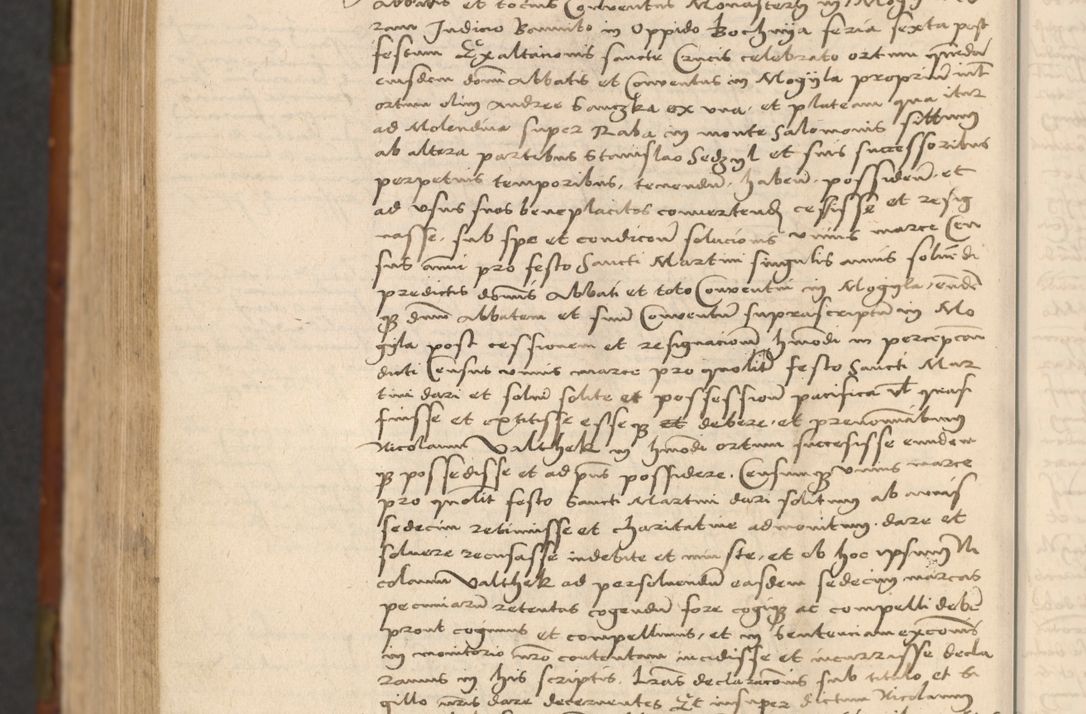 abbatis et totius Conventus Monasterij in Mogy
ram Judicio Bannito in Oppido Bochnija feria sexta post
festum Exaltationis sancte Crucis celebrato ortum quendam
eiusdem domi Abbatis et Conventus in Mogyla proprium inter
ortum olim Andree Sanczka ex una, et plateam qua itur
ad Molendina super Raba in monte Salomonis sittum
ab altera partibus Stanislao Sedzyl et suis successoribus
perpetuis temporibus, tenendum, habend, possidend, et
ad usus suos beneplacitos convertend cessisse et resig
nasse, sub spe et condicione solucionis unius marce Cen
sus anni pro festo Sancti Martini singulis annis solvendi
predictis dominis Abbati et toto Conventui in Mogyla, eund
q dnum Abbatem et suum Conventum suprascriptum in Mo
gyla post cessionem et resignacionem hmodi in percepcione
dicti Census unius marce pro quolibet festo Sancti Mar
tini dari et solvi solite et possessione pacifica vel quasi
fuisse et extitisse esseq et debere, et prenominatum
Nicolaum Valthek in hmodi ortum successisse eundem
q possedisse et ad pns possidere, Censumq unius marce
pro quolibet festo Sancti Martini dari solitum ab annis
sedecim retinuisse et charitative admonitum, dare et
solvere recusasse indebite et iniuste, et ob hoc ipsum Ni
colaum Valthek ad persolvendum easdem sedecim marcas
pecuniarum retentas cogendum fore cogiq ac compelli debere
prout cogimus et compellimus, et in sentenciam excomis
in monitorio nro contentam incidisse et incurrisse decla
ramus in his scriptis, Lras declaracionis sub titulo et si
gillo nris dare decernentes Et insuper dictum Nicolaum